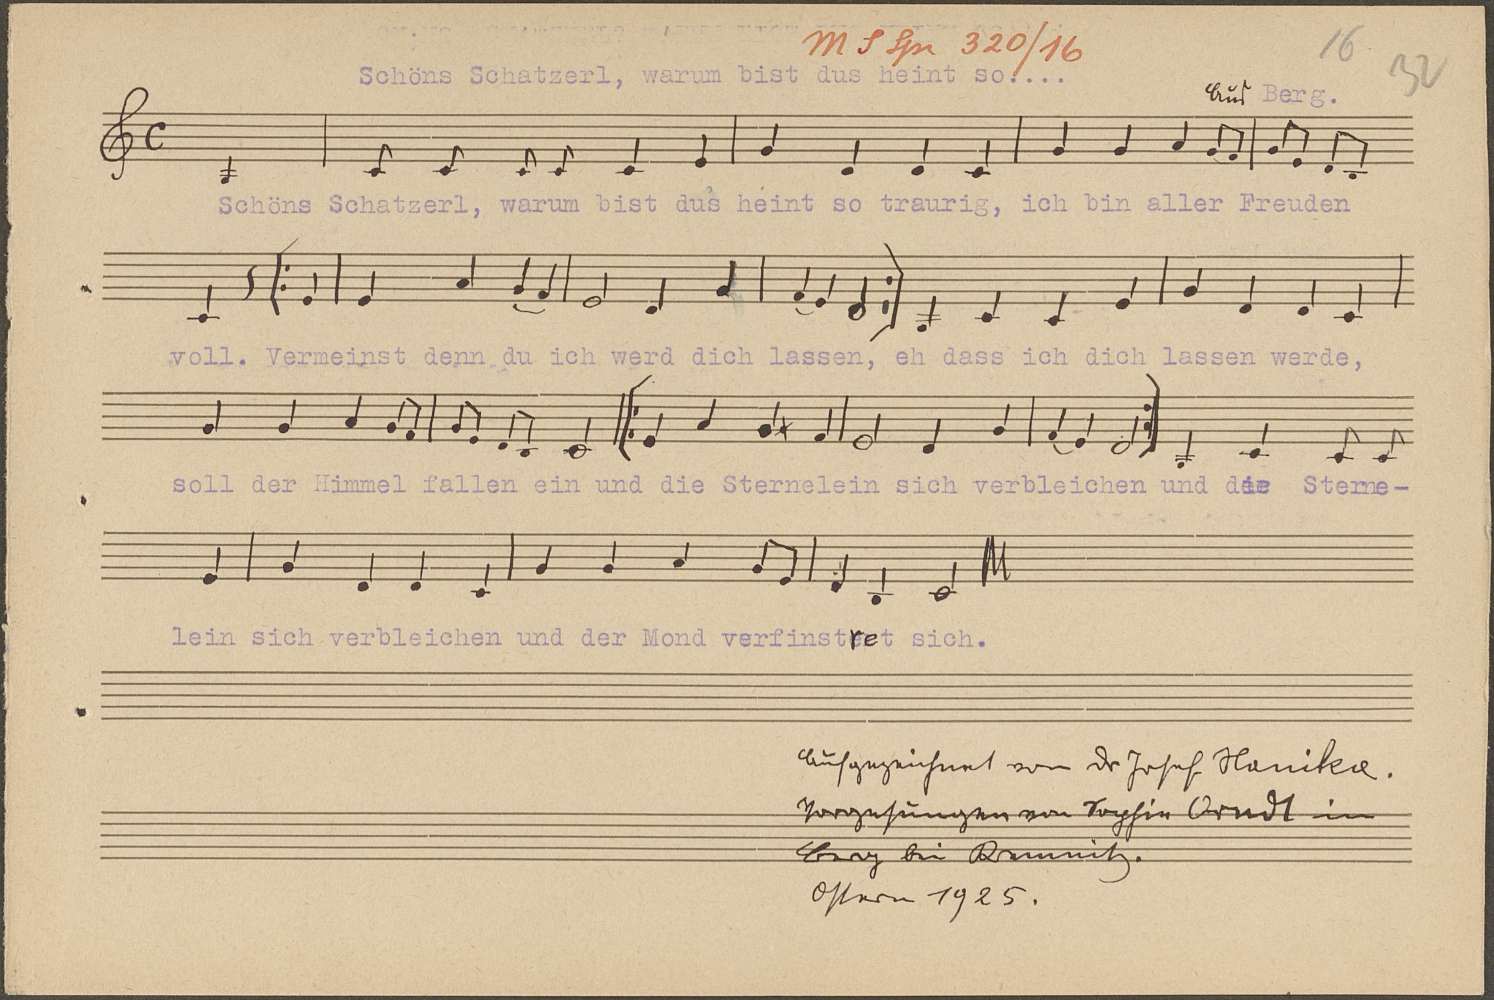 M S Spr 320/16
16
32
Schöns Schatzerl, warum bist dus heint so....
Aus Berg.
Schöns Schatzerl, warum bist dus heint so traurig, ich bin aller Freuden
voll. Vermeinst denn du ich werd dich lassen, eh dass ich dich lassen werde,
soll der Himmel fallen ein und die Sternelein sich verbleichen und die Sterne-
lein sich verbleichen und der Mond verfinstret sich.
Aufgezeichnet von Dr Josef Hanika.
Vorgesungen von Sophie Arndt in
Berg bei Kremnitz.
Ostern 1925.